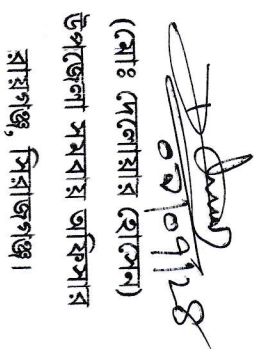 ০২/০৭/২৪
(মোঃ দেলোয়ার হোসেন)
উপজেলা সমবায় অফিসার
রায়গঞ্জ, সিরাজগঞ্জ।